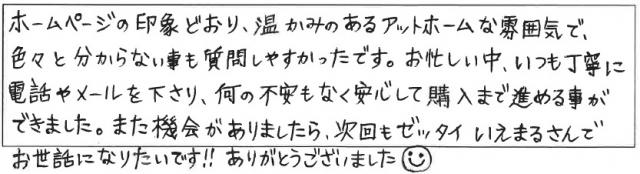 ホームページの印象どおり、温かみのあるアットホームな雰囲気で、
色々と分からない事も質問しやすかったです。お忙しい中、いつも丁寧に
電話やメールを下さり、何の不安もなく安心して購入まで進める事が
できました。また機会がありましたら、次回もゼッタイいえまるさんで
お世話になりたいです!! ありがとうございました☺